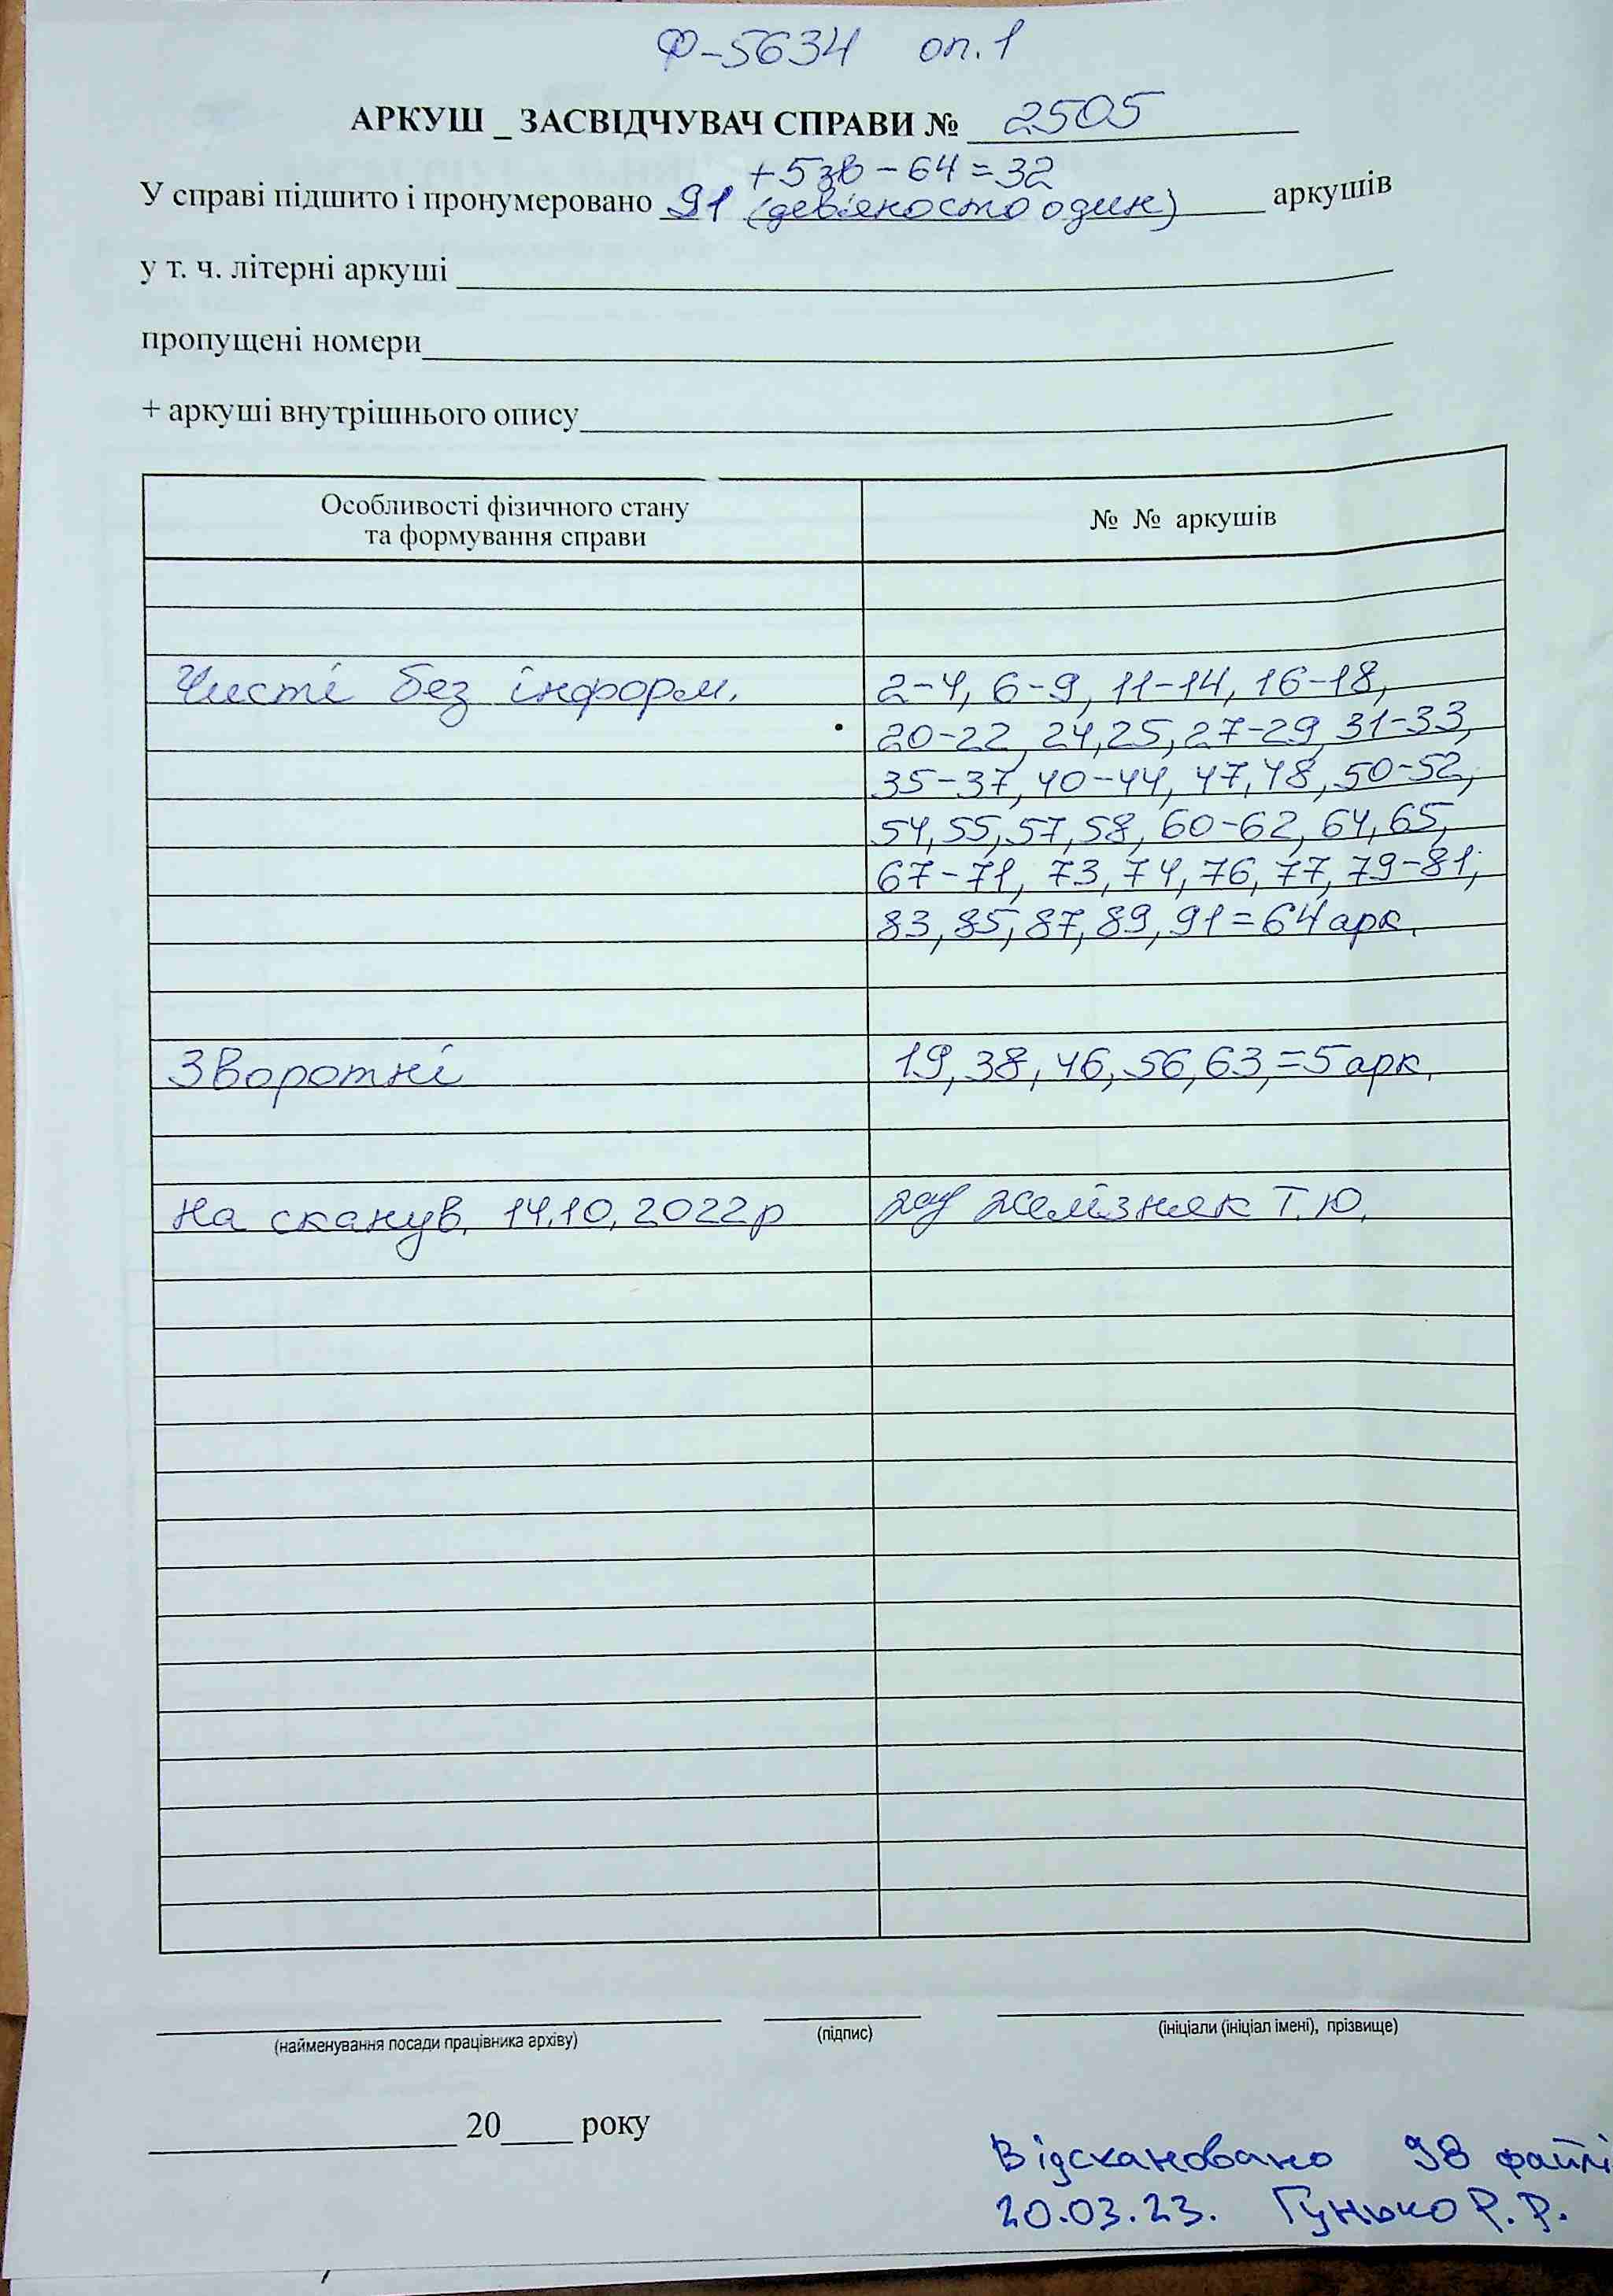 Ф-5634 оп.1
АРКУШ _ ЗАСВІДЧУВАЧ СПРАВИ № 2505
+5зв-64=32
У справі підшито і пронумеровано 91 (дев'яносто один) аркушів
у т. ч. літерні аркуші
пропущені номери
+ аркуші внутрішнього опису
Особливості фізичного стану
та формування справи
№ № аркушів
Чисті без інформ. 2-4, 6-9, 11-14, 16-18,
20-22, 24,25, 27-29, 31-33,
35-37, 40-44, 47,48, 50-52,
54,55, 57,58, 60-62, 64,65,
67-71, 73, 74, 76, 77, 79-81,
83, 85, 87, 89, 91=64 арк.
Зворотні 19, 38, 46, 56, 63,=5 арк.
На сканув. 14.10.2022р Желізняк Т.Ю.
(найменування посади працівника архіву)
(підпис)
(ініціали (ініціал імені), прізвище)
20 року
Відскановано 98 файлі
20.03.23. Гунько Р.Р.